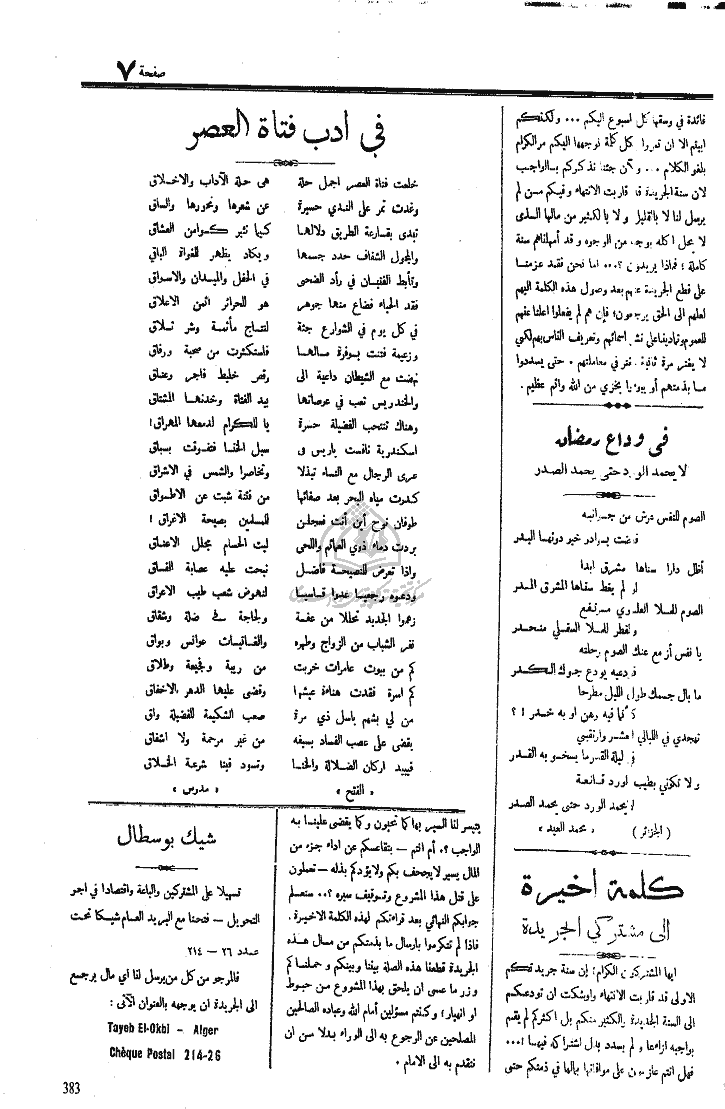 صفحة ٧
فائدة في وسعها كل اسبوع اليكم ... ولكنكم
ابيتم الا ان تمروا كل كلمة نوجهها اليكم مر الكرام
بلغو الكلام ... وآن جئنا نذكركم بالواجب
لان سنة الجريدة قد قاربت الانتهاء وفيكم من لم
يرسل لنا لا بالقليل ولا بالكثير من مالها الذى
لا يحل اكله بوجه من الوجوه وقد أمهلناهم سنة
كاملة ؛ فماذا يريدون ؟... اما نحن فقد عزمنا
على قطع الجريدة عنهم بعد وصول هذه الكلمة اليهم
لعلهم الى الحق يرجعون؛ فإن هم لم يفعلوا اعلنا عنهم
للعموم وتمادينا على نشر اسمائهم وتعريف الناس بهم لكي
لا يغتر مرة ثانية مغتر في معاملتهم . حتى يسددوا
ما بذمتهم أو يبوءوا بخزي من الله واثم عظيم .
فى وداع رمضان
لا يحمد الورد حتى يحمد الصدر
الصوم للنفس درس من
فاضت بوادر خير دونها البدر
أظل دارا سناها مشرق ابدا
لو لم يفظ سقاها المشرق المدر
الصوم للملا العلوي مرتفع
والفطر للملا السفلي منحدر
يا نفس أزمع عنك الصوم رحلته
فدعيه يودع جوك الكدر
ما بال جسمك طول الليل مطرحا
كأنما فيه وهن او به خدر ! ؟
تهجدي في الليالي العشر وارتقبي
في ليلة القدر ما يسخو به القدر
ولا تكوني بطيب لورد قانعة
لا يحمد الورد حتى يحمد الصدر
( الجزائر ) « محمد العيد »
كلمة اخيرة
الى مشتركي الجريدة
ايها المشتركون الكرام؛ إن سنة جريدتكم
الاولى قد قاربت الانتهاء واوشكت ان تودعكم
الى السنة الجديدة والكثير منكم بل اكثركم لم يقم
بواجبه ازاءها ولم يسدد بدل اشتراكه فيها !...
فهل انتم عازمون على موافاتها بمالها في ذمتكم حتى
في ادب فتاة العصر
خلعت فتاة العصر اجمل حلة هى حلة الآداب والاخلاق
وغدت تمر على الندي حسيرة عن شعرها ونحورها والساق
تبدى بقارعة الطريق دلالها كيما تثير كوامن العشاق
والمجول الشفاف حدد جسمها ويكاد يظهر للغواة الباقي
وتأبط الفتيان في رأد الضحى في الحفل والميدان والاسواق
فقد الحياء فضاع منها جوهر هو للحرائر اثمن الاعلاق
في كل يوم في الشوارع جثة لنتاج مأثمة وشر تلاق
وزعيمة فتنت بوفرة مالها فاستكثرت من صحبة ورفاق
نهضت مع الشيطان داعية الى رقص خليط فاجر وعناق
والخندريس تصب في عرصاتها بيد الفتاة وخدنها المشتاق
وهناك تنتحب الفضيلة حسرة يا للكرام لدمعها المهراق!
اسكندرية نافست باريس في سبل الخنا فتفوقت بسباق
عرى الرجال مع النساء تبذلا وتخاصرا والشمس في الاشراق
كدرت مياه البحر بعد صفائها من فتنة شبت عن الاطواق
طوفان نوح أين أنت فعجلن للمسلمين بصيحة الاغراق !
بردت دماء ذوي العمائم واللحى ليت الحسام مجلل الاعناق
واذا تعرض للنصيحة فاضل نبحت عليه عصابة الفساق
ودعوه رجعيا عدوا قاسيا لنهوض شعب طيب الاعراق
زعموا الجديد تحللا من عفة ولجاجة في ضلة وشقاق
نفر الشباب من الزواج وطهره والغانيات عوانس وبواق
كم من بيوت عامرات خربت من ريبة وفجيعة وطلاق
كم اسرة فقدت هناءة عيشها وقضى عليها الدهر بالاخفاق
من لي بشهم باسل ذي مرة صعب الشكيمة للفضيلة واق
يقضى على عصب الفساد بسيفه من غير مرحمة ولا اشفاق
فيبيد اركان الضلالة والخنا وتسود فينا شرعة الخلاق
« الفتح » « مدرس »
يتيسر لنا السير بها كما تحبون وكما يقضى علينا به
الواجب ؟. أم انتم – بتقاعسكم عن اداء جزء من
المال يسير لا يجحف بكم ولا يؤدكم بذله – تعملون
على قتل هذا المشروع وتوقيف سيره ؟.. سنعلم
جوابكم النهائي بعد قراءتكم لهذه الكلمة الاخيرة .
فاذا لم تتكرموا بارسال ما بذمتكم من مال هذه
الجريدة قطعنا هذه الصلة بيننا وبينكم وحملناكم
وزر ما عسى ان يلحق بهذا المشروع من حبوط
او انهيار؛ وكنتم مسؤلين أمام الله وعباده الصالحين
المصلحين عن الرجوع به الى الوراء بدلا من ان
نتقدم به الى الامام .
شيك بوسطال
تسهيلا على المشتركين والباعة واقتصادا في اجر
التحويل – فتحنا مع البريد العام شيكا تحت
عدد ٢٦ – ٢١٤
فالمرجو من كل من يرسل لنا اي مال يرجع
الى الجريدة ان يوجهه بالعنوان الآتى :
Tayeb El-Okbi – Alger
Chèque Postal 214-26
383